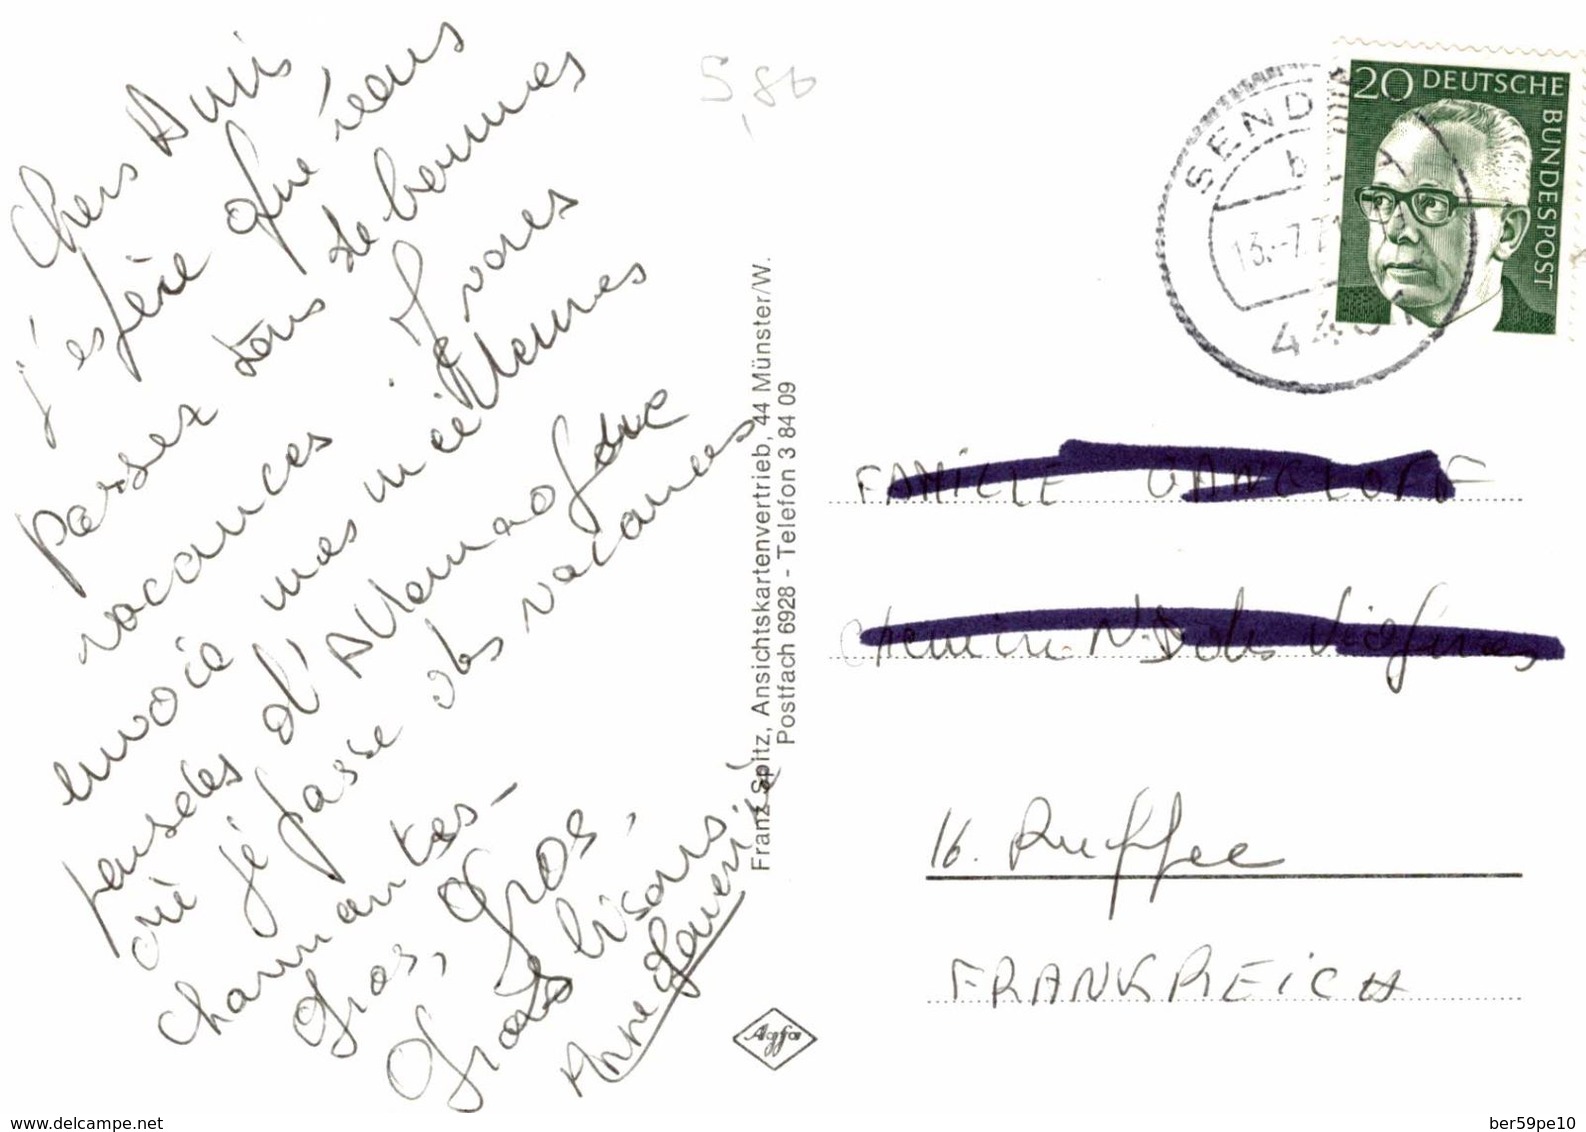 Chers Amis
j'espère que vous
passez tous de bonnes
vacances. Je vous
envoie mes meilleures
pensées d'Allemagne
où je passe des vacances
charmantes -
Gros, Gros,
Gros bisous.
Anne
Franz Spitz, Ansichtskartenvertrieb, 44 Münster/W.
Postfach 6928 - Telefon 3 84 09
Agfa
5,86
SEND
b
13.-7.71
44
20 DEUTSCHE
BUNDESPOST
FAMILLE
Chemin N.D des
16. Ruffec
FRANKREICH
www.delcampe.net
ber59pe10